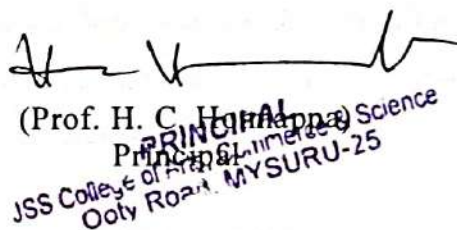 (Prof. H. C. Honnappa)
Principal
PRINCIPAL
JSS College of Arts, Commerce & Science
Ooty Road, MYSURU-25